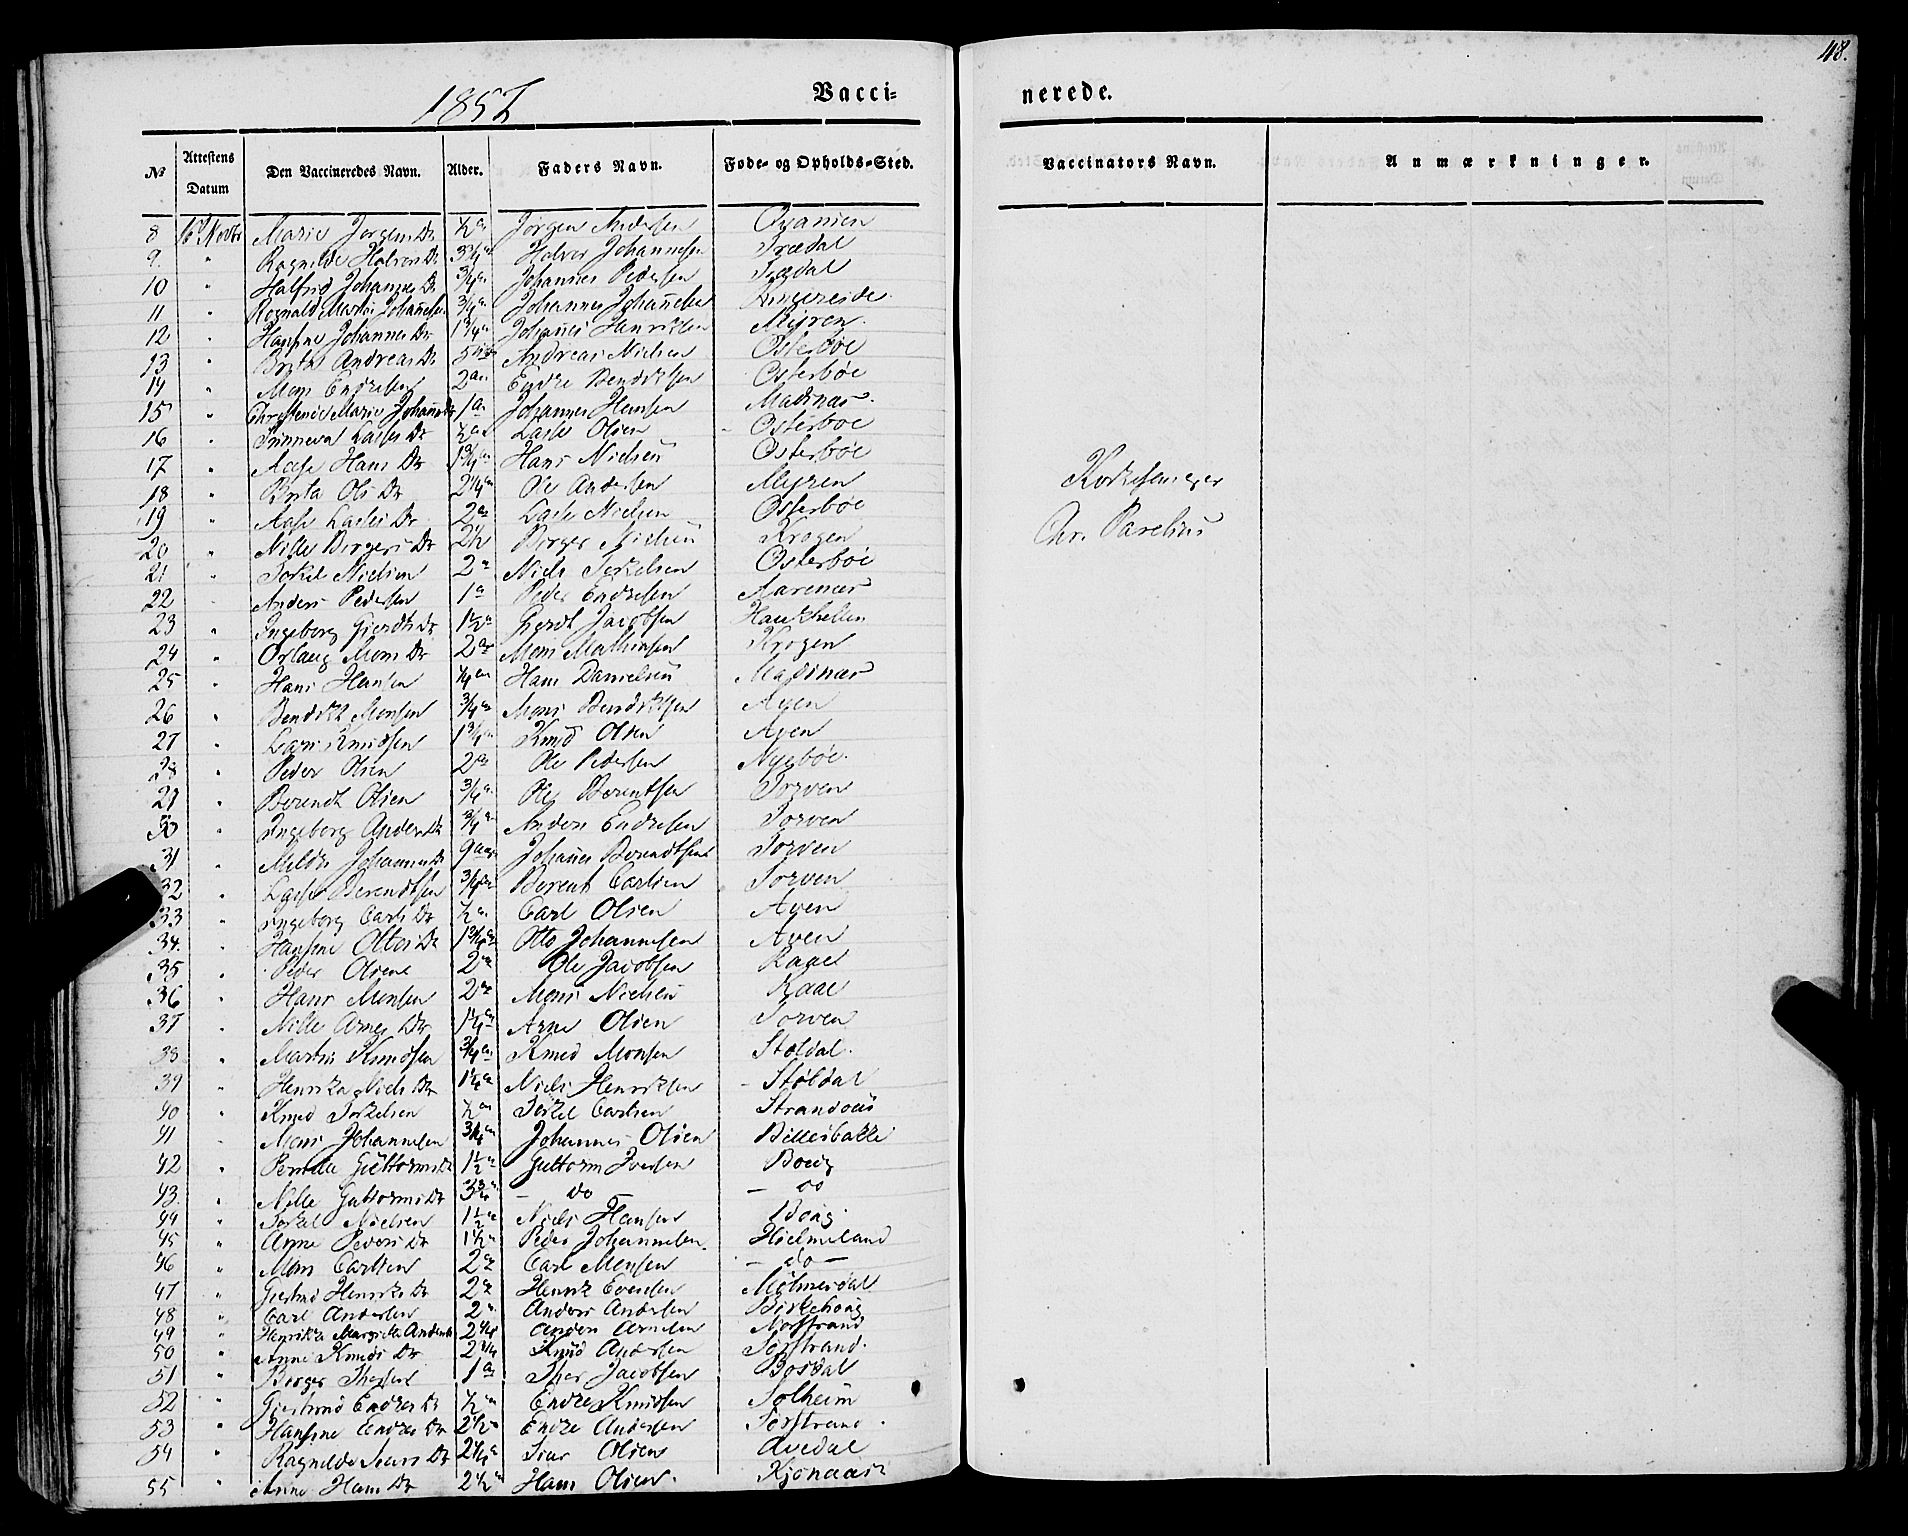 48.
1852
Vacci-
nerede.
No
Attestens Datum
Den Vaccineredes Navn.
Alder.
Faders Navn.
Føde- og Opholds-Sted.
Vaccinators Navn.
Anmærkninger.
8 Marie Jørgens Dr ½ a Jørgen Andersen
9 " Ragnilde Halvors Dr Halvor Johannesen Trædal
10 " Johannes Dr ¾ a Johannes Pedersen Trædal
11 " Rognald Martin Johannesen ¾ a Johannes Johannesen
12 " Hansine Johannes Dr 1¾ a Johannes Henriksen Myren
13 " Brita Andreas Dr Andreas Nielsen Østerbøe
14 " Mons Endresen 2 a Endre Bendiksen Østerbøe
15 " Marie Johannes Dr 1 a Johannes Hansen Madsnæs
16 " Synneva Lasses Dr ½ a Lasse Olsen Østerbøe
17 " Aase Hans Dr 1¾ a Hans Nielsen Østerbøe
18 " Brita Ols Dr 2¼ a Ole Andersen Myren
19 " Aase Lasses Dr 2 a Lasse Nielsen Østerbøe
20 " Nille Birgers Dr 2½ Birger Nielsen Krogen
21 " Torkel Nielsen 2 a Niels Torkelsen Østerbøe
22 " Anders Pedersen 1 a Peder Endresen Marenæs
23 " Ingeborg Gierdts Dr 1½ a Gierdt Jacobsen
24 " Mons Dr 2 a Mons Mathiasen Krogen
25 " Hans Hansen ¼ a Hans Danielsen Madsnæs
26 " Bendik Monsen ¾ a Mons Bendiksen Aven
27 " Lars Knudsen 1¾ a Knud Olsen Aven
28 " Peder Olsen 2 a Ole Pedersen Nyebøe
29 " Berendt Olsen ¾ a Ole Berentsen Torven
30 " Ingeborg Anders Dr ¾ a Anders Endresen Torven
31 " Johannes Dr 9 a Johannes Berendtsen Torven
32 " Lasse Berendtsen ¾ a Berent Carlsen Torven
33 " Ingeborg Carls Dr ½ a Carl Olsen Aven
34 " Hansine Ottos Dr 1¾ a Otto Johannesen Aven
35 " Peder Olsen 2 a Ole Jacobsen Kaae
36 " Hans Monsen 2 a Mons Nielsen Kaae
37 " Nille Arnes Dr 1¼ a Arne Olsen Torven
38 " Martin Knudsen ¾ a Knud Monsen Støldal
39 " Henrika Niels Dr Niels Henriksen Støldal
40 " Knud Torkelsen ½ a Torkel Carlsen
41 " Mons Johannesen ¾ a Johannes Olsen
42 " Pernille Guttorms Dr 1½ a Guttorm Iversen
43 " Nille Guttorms Dr do do
44 " Torkel Nielsen 1½ a Niels Hansen
45 " Anne Peders Dr 1½ a Peder Johannesen Hielmeland
46 " Mons Carlsen 2 a Carl Monsen do
47 " Giertrud Henriks Dr 2 a Henrik Evensen Mølmesdal
48 " Carl Andersen 2 a Anders Andersen Birkehoug
49 " Henrikke Margrethe Anders Dr 2¼ Anders Arnesen Norstrand
50 " Anne Knuds Dr 2¼ Knud Andersen Sørstrand
51 " Birger 1 a Jacobsen
52 " Giertrud Endres Dr ½ a Endre Knudsen Solheim
53 " Hansine Endres Dr 2½ a Endre Andersen Sørstrand
54 " Ragnilde Ivars Dr 2½ a Ivar Olsen Avedal
55 " Anne Hans Dr 2½ a Hans Olsen
Kirkesanger
Chr. Parelius